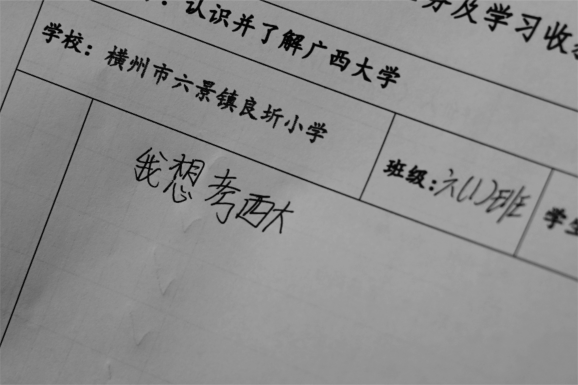 ：认识并了解广西大学
及学习收
学校：横州市六景镇良圻小学
班级：六(1)班
学生
我想考西大